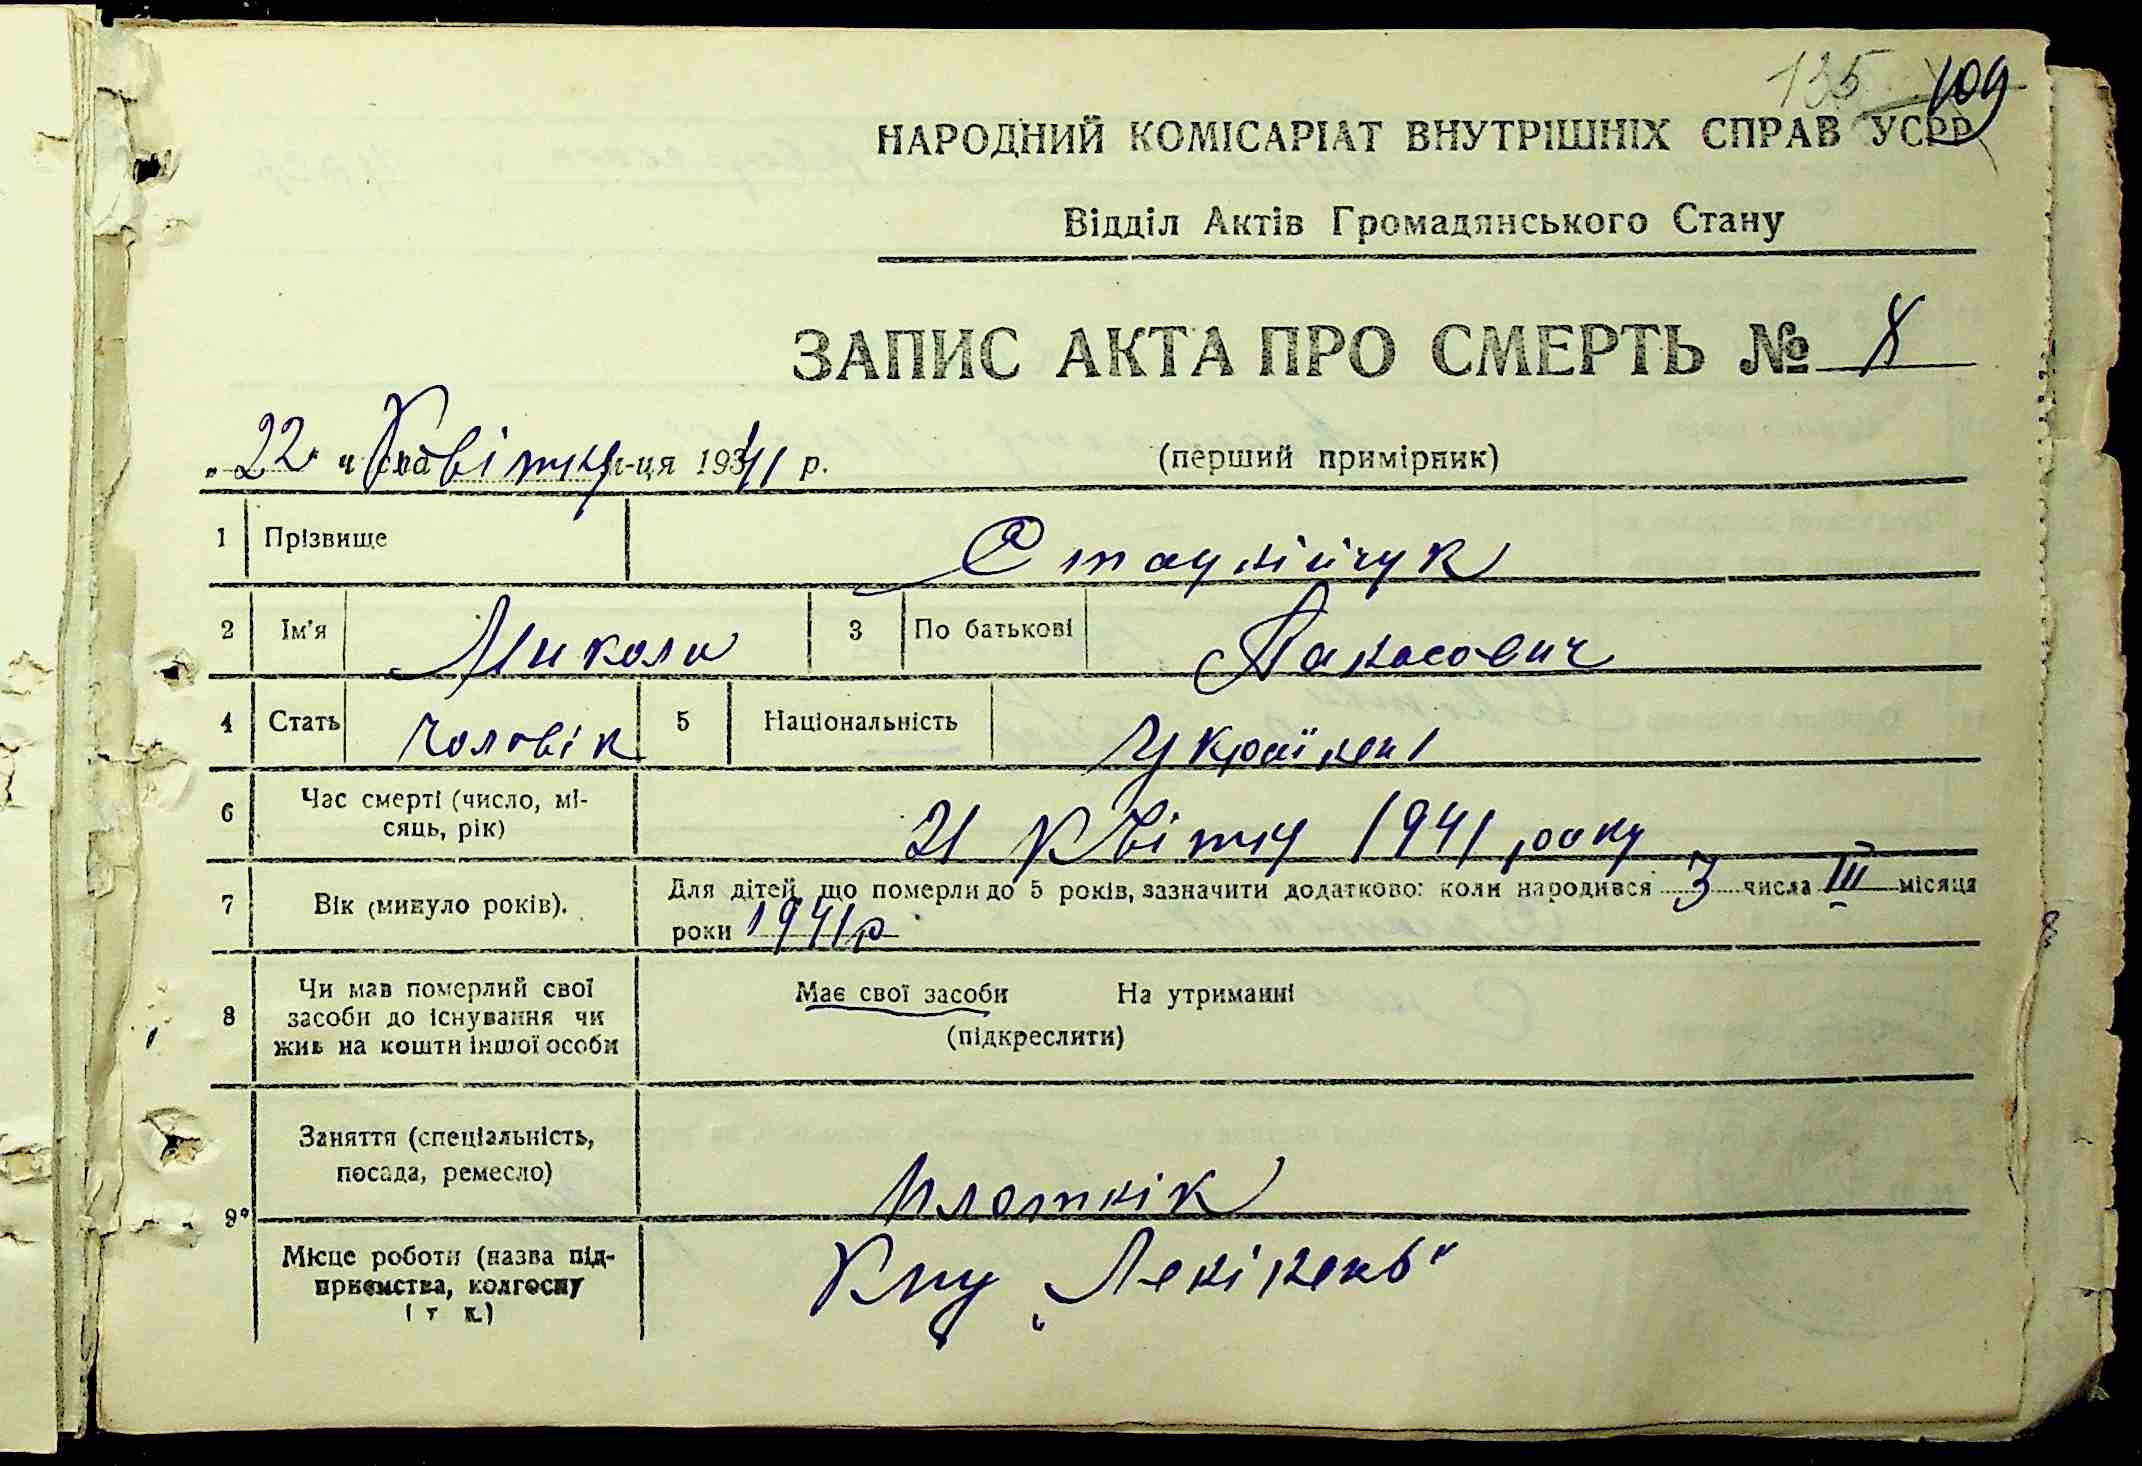 135 109
НАРОДНИЙ КОМІСАРІАТ ВНУТРІШНІХ СПРАВ УСРР
Відділ Актів Громадянського Стану
ЗАПИС АКТА ПРО СМЕРТЬ № 8
„22" числа Квітня м-ця 1941 р. (перший примірник)
1 Прізвище
2 Ім'я Микола 3 По батькові
4 Стать Чоловік 5 Національність Українець
6 Час смерті (число, мі-
сяць, рік) 21 Квітня 1941 року
7 Вік (минуло років). Для дітей, що померли до 5 років, зазначити додатково: коли народився 3 числа III місяця
роки 1941 р
8 Чи мав померлий свої
засоби до існування чи
жив на кошти іншої особи
Має свої засоби На утриманні
(підкреслити)
9 Заняття (спеціальність,
посада, ремесло) Плотнік
Місце роботи (назва під-
приємства, колгоспу
і т. п.)